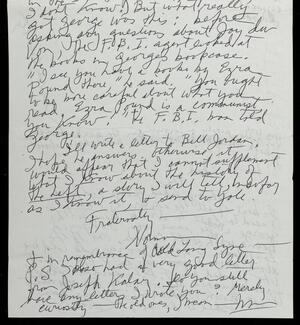 I don't know! But what really
got George was this: before
asking any questions about Jay du
Von, the F.B.I. agent looked at
the books in George's bookcase.
"I see you have 2 books by Ezra
Pound there," he said. "You ought
to be more careful about what you
read. Ezra Pound is a communist
you know." The F.B.I. was told
George.
I'll write a letter to Bill Jordan.
I hope he answers, otherwise it
would appear that I cannot supplement
what I know about the history of
The Left, a story I will tell, insofar
as I know it, to send to Yale
Fraternally
Norman
In remembrance of Auld Lang Syne
P.S. I also had a very good letter
from Joseph Kalar. Do you still
have any letters I wrote you? Merely
curiosity. Old ones, I mean.